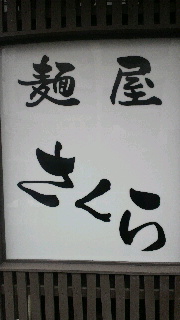 麺屋
さくら